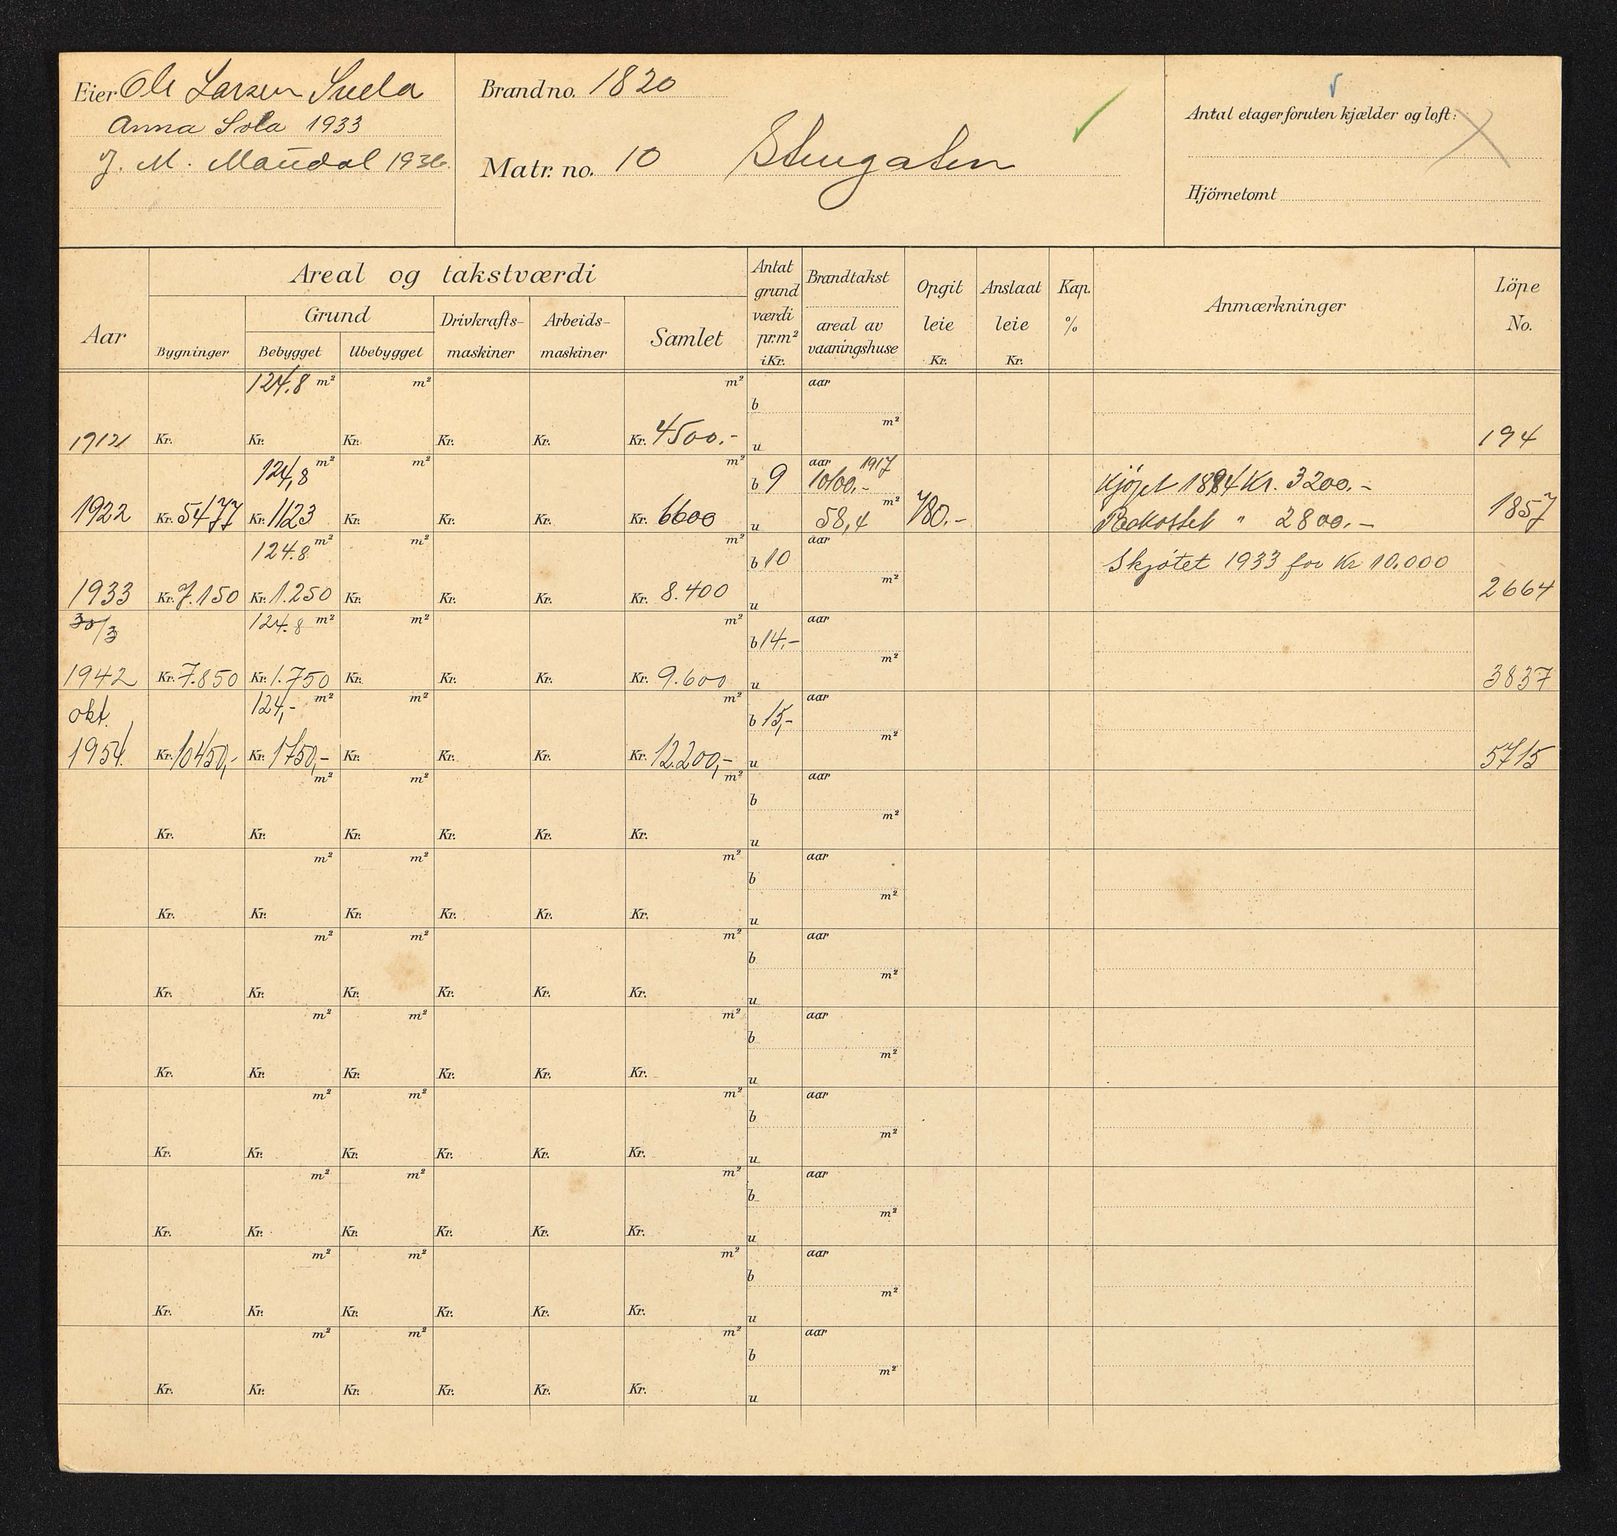 Eier Ole Larsen Svela
Anna Sola 1933
J. M. Maudal 1936.
Brandno. 1820
Matr. no. 10 Stengaten
Antal etager foruten kjælder og loft:
Hjörnetomt
Aar
Areal og takstværdi
Bygninger
Grund
Bebygget Ubebygget
Drivkrafts-maskiner
Arbeids-maskiner
Samlet
Antat grund værdi pr. m² i Kr.
Brandtakst
areal av vaaningshuse
Opgit leie Kr.
Anslaat leie Kr.
Kap. %
Anmærkninger
Löpe No.
124.8 m² m² m² b aar
1912 Kr. Kr. Kr. Kr. Kr. Kr. 4500.- u m² 194
124,8 m² m² m² b 9 aar 1917 10100.- Kjøpt 1894 Kr. 3200.-
1922 Kr. 5477 Kr. 1123 Kr. Kr. Kr. Kr. 6600 u 58,4 m² 780.- Bekostet " 2800.- 1857
124.8 m² m² m² b 10 aar Skjøtet 1933 for Kr 10.000
1933 Kr. 7.150 Kr. 1.250 Kr. Kr. Kr. Kr. 8.400 u m² 2664
30/3 124.8 m² m² m² b 14.- aar
1942 Kr. 7.850 Kr. 1.750 Kr. Kr. Kr. Kr. 9.600 u m² 3837
okt. 124,- m² m² m² b 15,- aar
1954. Kr. 10450,- Kr. 1750,- Kr. Kr. Kr. Kr. 12.200,- u m² 5715
m² m² m² b aar
Kr. Kr. Kr. Kr. Kr. Kr. u m²
m² m² m² b aar
Kr. Kr. Kr. Kr. Kr. Kr. u m²
m² m² m² b aar
Kr. Kr. Kr. Kr. Kr. Kr. u m²
m² m² m² b aar
Kr. Kr. Kr. Kr. Kr. Kr. u m²
m² m² m² b aar
Kr. Kr. Kr. Kr. Kr. Kr. u m²
m² m² m² b aar
Kr. Kr. Kr. Kr. Kr. Kr. u m²
m² m² m² b aar
Kr. Kr. Kr. Kr. Kr. Kr. u m²
m² m² m² b aar
Kr. Kr. Kr. Kr. Kr. Kr. u m²